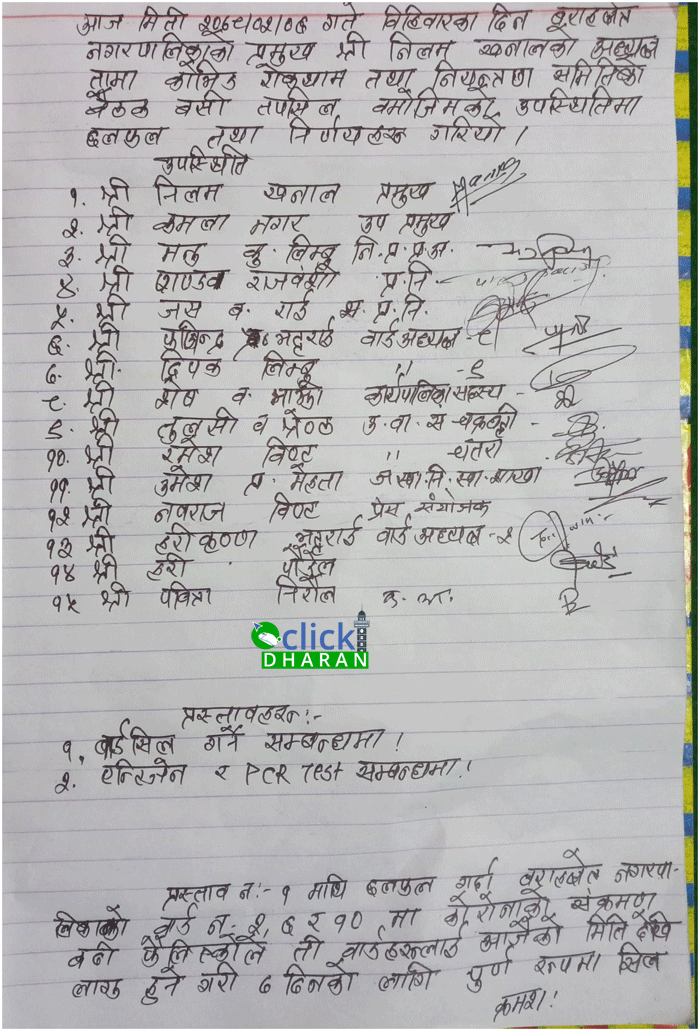 आज मिती २०७८/०२/०६ गते विहिवारका दिन वराहक्षेत्र
नगरपालिकाको प्रमुख श्री निलम खनालको अध्यक्ष
तामा कोभिड रोकथाम तथा नियन्त्रण समितिको
बैठक बसी तपसिल वमोजिमको उपस्थितिमा
छलफल तथा निर्णयहरू गरियो ।
उपस्थिति
१. श्री निलम खनाल प्रमुख
२. श्री कमला मगर उप प्रमुख
३. श्री मनु कु. लिम्बू नि.प्र.प्र.अ.
४. श्री खाण्डव राजवंशी प्र.नि.
५. श्री जस ब. राई स.प्र.नि.
६. श्री फणिन्द्र प्र. भट्टराई वार्ड अध्यक्ष - ८
७. श्री दिपक लिम्बू " - ९
८. श्री शेष ब. माझी कार्यपालिका सदस्य -
९. श्री तुलसी ब पौडेल उ. वा. स - चक्रघट्टी -
१०. श्री रमेश विष्ट " - चतरा
११. श्री उमेश प्र. मेहता ज.स्वा.नि. स्वा. शाखा
१२ श्री नवराज विष्ट प्रेस संयोजक
१३ श्री हरी कृष्ण भट्टराई वार्ड अध्यक्ष - २
१४ श्री हरी पौडेल
१५ श्री पवित्रा निरौला क. अ.
click
DHARAN
प्रस्तावहरू :-
१. वार्ड सिल गर्ने सम्बन्धमा !
२. एन्टिजेन र PCR Test सम्बन्धमा !
प्रस्ताव न:- १ माथि छलफल गर्दा वराहक्षेत्र नगरपा-
लिकाको वार्ड न. २, ६ र १० मा कोरोनाको संक्रमण
बढी फैलिएकोले ती वार्डहरूलाई आजैको मिति देखि
लागु हुने गरी ७ दिनको लागि पुर्ण रूपमा सिल
क्रमश !